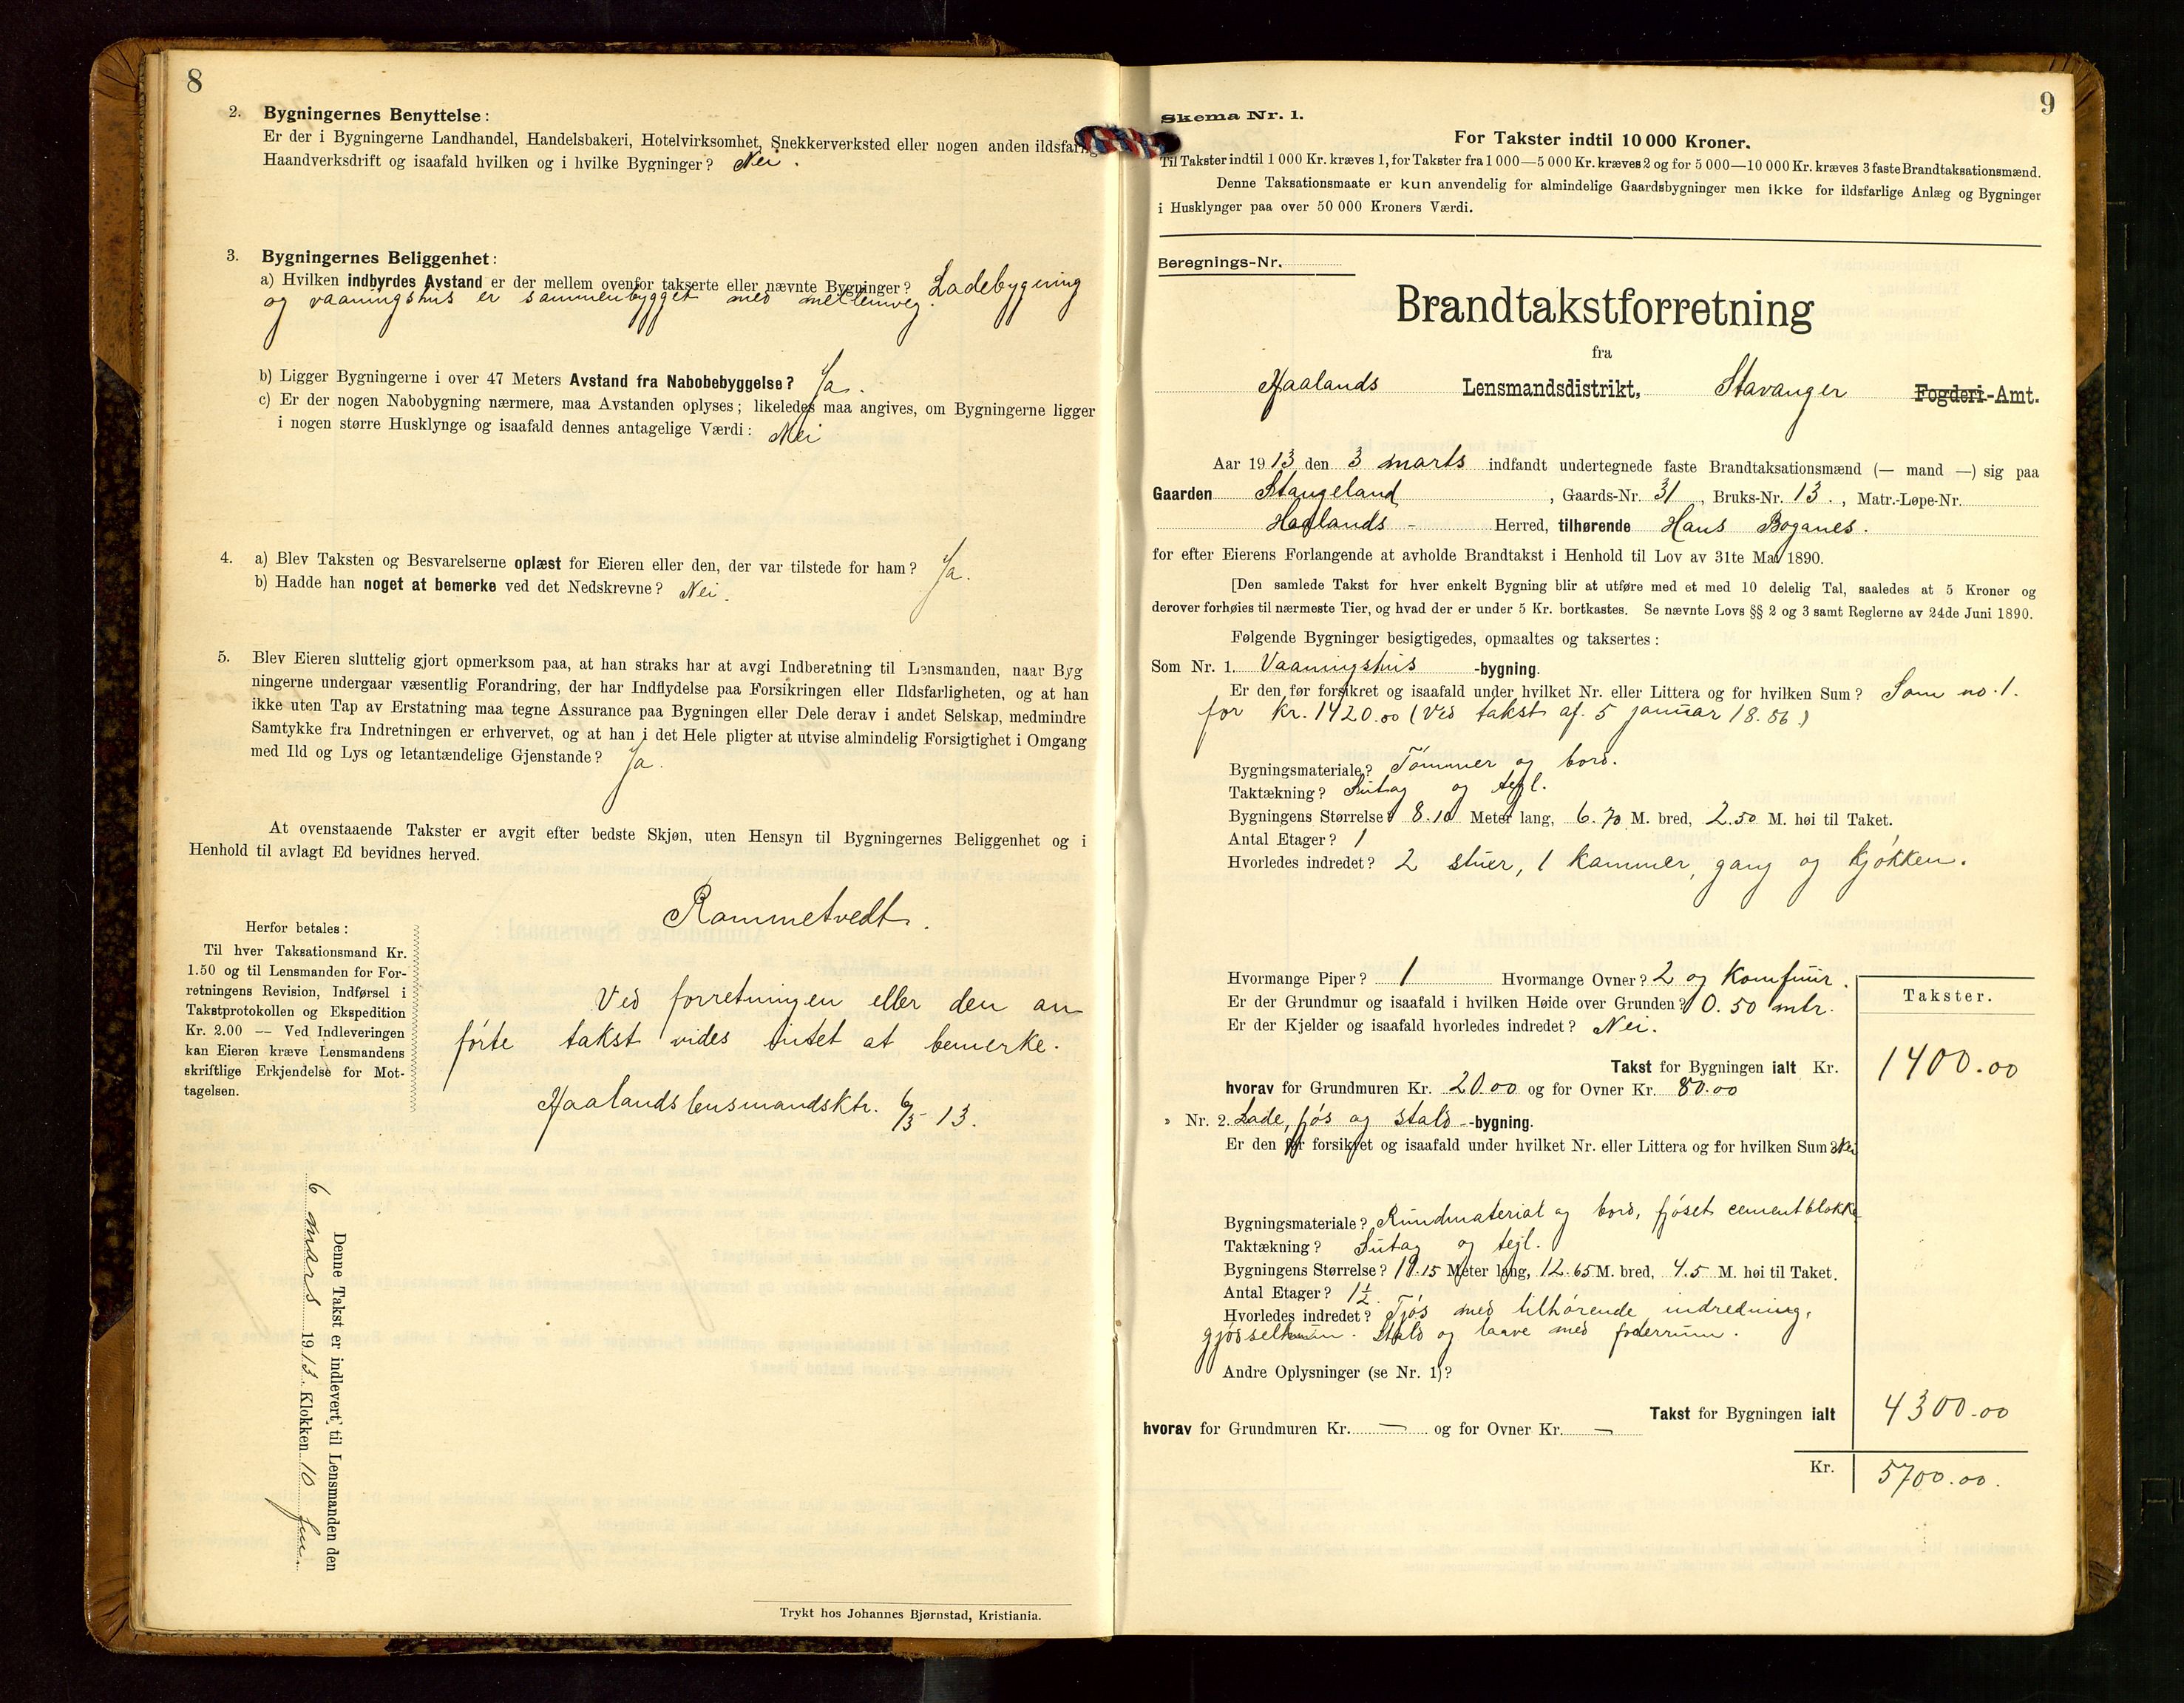 8
2. Bygningernes Benyttelse:
Er der i Bygningerne Landhandel, Handelsbakeri, Hotelvirksomhet, Snekkerverksted eller nogen anden ildsfarlig
Haandverksdrift og isaafald hvilken og i hvilke Bygninger? Nei.
3. Bygningernes Beliggenhet:
a) Hvilken indbyrdes Avstand er der mellem ovenfor takserte eller nævnte Bygninger? Ladebygning
og vaaningshus er sammenbygget med mellemveg.
b) Ligger Bygningerne i over 47 Meters Avstand fra Nabobebyggelse? Ja.
c) Er der nogen Nabobygning nærmere, maa Avstanden oplyses; likeledes maa angives, om Bygningerne ligger
i nogen større Husklynge og isaafald dennes antagelige Værdi: Nei
4. a) Blev Taksten og Besvarelserne oplæst for Eieren eller den, der var tilstede for ham? Ja.
b) Hadde han noget at bemerke ved det Nedskrevne? Nei.
5. Blev Eieren sluttelig gjort opmerksom paa, at han straks har at avgi Indberetning til Lensmanden, naar Byg
ningerne undergaar væsentlig Forandring, der har Indflydelse paa Forsikringen eller Ildsfarligheten, og at han
ikke uten Tap av Erstatning maa tegne Assurance paa Bygningen eller Dele derav i andet Selskap, medmindre
Samtykke fra Indretningen er erhvervet, og at han i det Hele pligter at utvise almindelig Forsigtighet i Omgang
med Ild og Lys og letantændelige Gjenstande? Ja.
At ovenstaaende Takster er avgit efter bedste Skjøn, uten Hensyn til Bygningernes Beliggenhet og i
Henhold til avlagt Ed bevidnes herved.
Rammetvedt.
Herfor betales:
Til hver Taksationsmand Kr.
1.50 og til Lensmanden for For-
retningens Revision, Indførsel i
Takstprotokollen og Ekspedition
Kr. 2.00 — Ved Indleveringen
kan Eieren kræve Lensmandens
skriftlige Erkjendelse for Mot-
tagelsen.
Ved forretningen eller den an
førte takst vides intet at bemerke.
Haalands lensmandsktr. 6/3-13.
Denne Takst er indlevert til Lensmanden den
6 mars 1913. Klokken 10 fm.
Trykt hos Johannes Bjørnstad, Kristiania.
9
Skema Nr. 1.
For Takster indtil 10 000 Kroner.
Til Takster indtil 1 000 Kr. kræves 1, for Takster fra 1 000—5 000 Kr. kræves 2 og for 5 000—10 000 Kr. kræves 3 faste Brandtaksationsmænd.
Denne Taksationsmaate er kun anvendelig for almindelige Gaardsbygninger men ikke for ildsfarlige Anlæg og Bygninger
i Husklynger paa over 50 000 Kroners Værdi.
Beregnings-Nr.
Brandtakstforretning
fra
Haalands Lensmandsdistrikt, Stavanger Fogderi-Amt.
Aar 1913 den 3 marts indfandt undertegnede faste Brandtaksationsmænd (— mand —) sig paa
Gaarden Stangeland, Gaards-Nr. 31, Bruks-Nr. 13., Matr.-Løpe-Nr.
Haalands - Herred, tilhørende Hans Boganes.
for efter Eierens Forlangende at avholde Brandtakst i Henhold til Lov av 31te Mai 1890.
[Den samlede Takst for hver enkelt Bygning blir at utføre med et med 10 delelig Tal, saaledes at 5 Kroner og
derover forhøies til nærmeste Tier, og hvad der er under 5 Kr. bortkastes. Se nævnte Lovs §§ 2 og 3 samt Reglerne av 24de Juni 1890.
Følgende Bygninger besigtigedes, opmaaltes og taksertes:
Som Nr. 1. Vaaningshus -bygning.
Er den før forsikret og isaafald under hvilket Nr. eller Littera og for hvilken Sum? Som no. 1.
for kr. 1420.00 (Ved takst af. 5 januar 18.86.)
Bygningsmateriale? Tømmer og bord.
Taktækning? Sutag og tegl.
Bygningens Størrelse? 8.10 Meter lang, 6.70 M. bred, 2.50 M. høi til Taket.
Antal Etager? 1
Hvorledes indredet? 2 stuer, 1 kammer, gang og kjøkken.
Hvormange Piper? 1 Hvormange Ovner? 2 og komfuur.
Er der Grundmur og isaafald i hvilken Høide over Grunden? 0.50 mtr.
Er der Kjelder og isaafald hvorledes indredet? Nei.
Takster.
Takst for Bygningen ialt Kr. 1400.00
hvorav for Grundmuren Kr. 20.00 og for Ovner Kr. 80.00
» Nr. 2. Lade, fjøs og stald -bygning.
Er den før forsikret og isaafald under hvilket Nr. eller Littera og for hvilken Sum? Nei
Bygningsmateriale? Rundmaterial og bord, fjøset cementblokke
Taktækning? Sutag og tegl.
Bygningens Størrelse? 19.15 Meter lang, 12.65 M. bred, 4.5 M. høi til Taket.
Antal Etager? 1½.
Hvorledes indredet? Fjøs med tilhørende indredning,
Stald og laave med foderrum.
Andre Oplysninger (se Nr. 1)?
Takst for Bygningen ialt 4300.00
hvorav for Grundmuren Kr. — og for Ovner Kr. —
Kr. 5700.00.